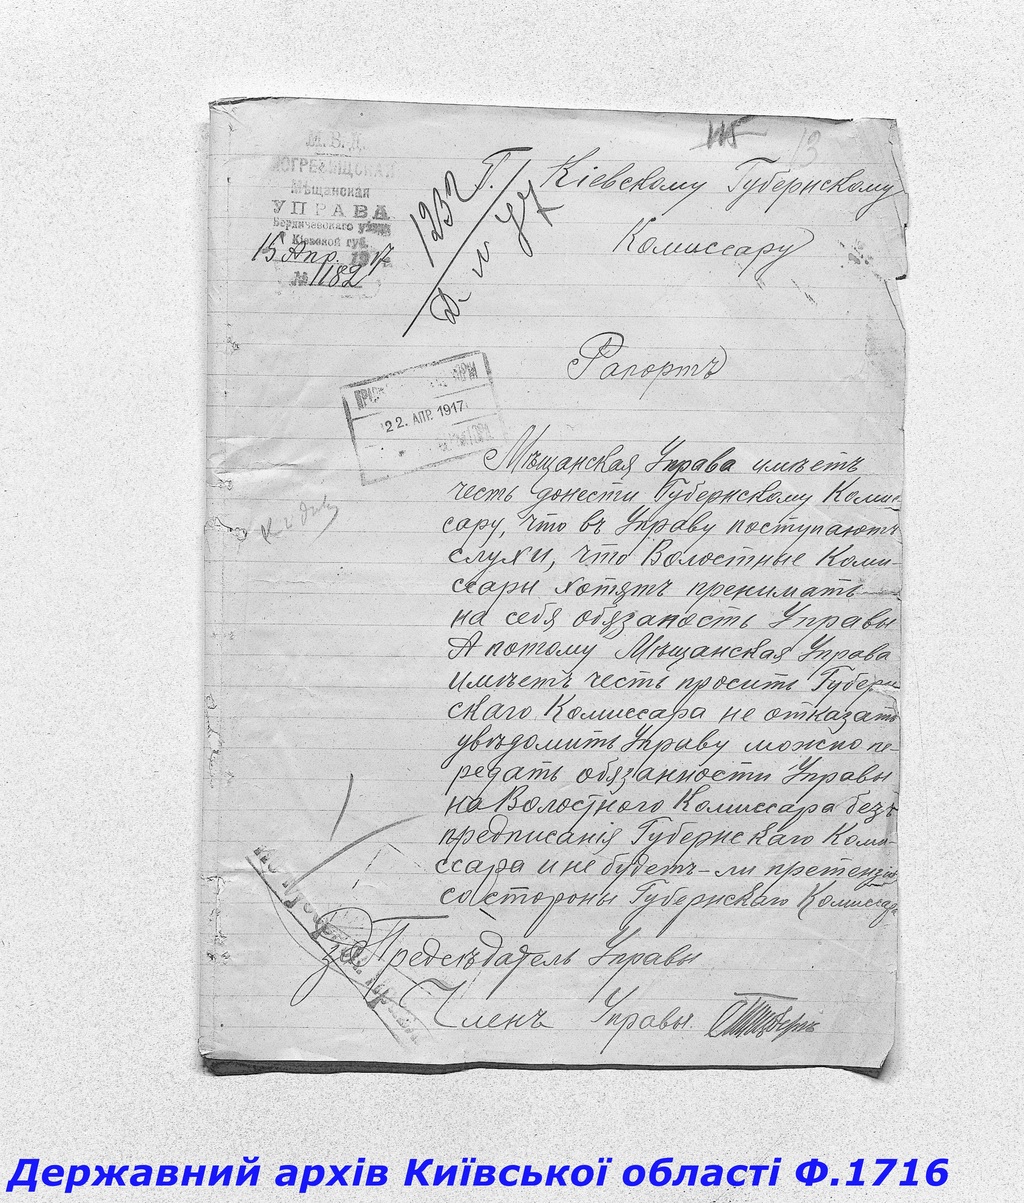 115 13
М. В. Д.
ПОГРЕБИЩСКАЯ
Мѣщанская
УПРАВА
Бердичевскаго уѣзда
Кіевской губ.
15 Апр. 1917
№ 1182
1232
Г. Кіевскому Губернскому
Комиссару
Рапортъ
22. АПР. 1917
Мѣщанская Управа имѣетъ
честь донести Губернскому Комис-
сару, что въ Управу поступаютъ
слухи, что Волостные Коми-
ссары хотятъ пренимать
на себя обязаность Управы
А потому Мѣщанская Управа
имѣетъ честь просить Губерн
скаго Комиссара не отказать
увѣдомить Управу можно пе-
редать обязанности Управы
на Волостного Комиссара безъ
предписанія Губернскаго Коми-
ссара и не будетъ-ли претензіи
со стороны Губернскаго Комиссара
за Предсѣдатель Управы
Членъ Управы
Державний архів Київської області Ф.1716